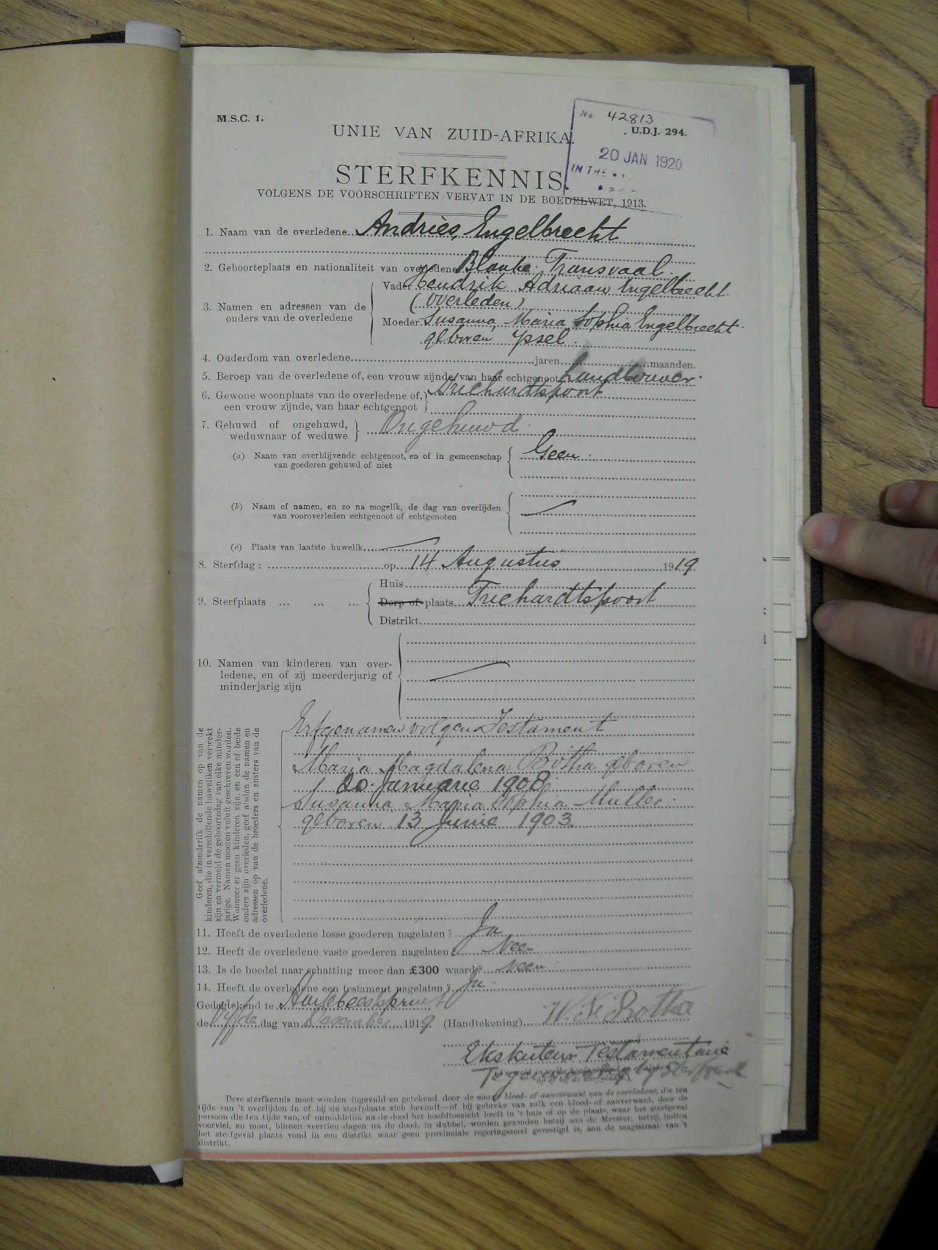 M.S.C. 1.
No 42813
U.D.J. 294.
UNIE VAN ZUID-AFRIKA.
20 JAN 1920
IN THE
STERFKENNIS.
VOLGENS DE VOORSCHRIFTEN VERVAT IN DE BOEDELWET, 1913.
1. Naam van de overledene Andries Engelbrecht
2. Geboorteplaats en nationaliteit van overledene Transvaal
3. Namen en adressen van de ouders van de overledene
Vader Hendrik Adriaan Engelbrecht
(overleden)
Moeder Susanna Maria Sophia Engelbrecht
geboren Ysel
4. Ouderdom van overledene jaren maanden.
5. Beroep van de overledene of, een vrouw zijnde, van haar echtgenoot Landbouwer
6. Gewone woonplaats van de overledene of, een vrouw zijnde, van haar echtgenoot Trichardtspoort
7. Gehuwd of ongehuwd, weduwnaar of weduwe Ongehuwd
(a) Naam van overblijvende echtgenoot, en of in gemeenschap van goederen gehuwd of niet Geen
(b) Naam of namen, en zo na mogelik, de dag van overlijden van vooroverleden echtgenoot of echtgenoten
(c) Plaats van laatste huwelik
8. Sterfdag : op 14 Augustus 1919
9. Sterfplaats ... ... ...
Huis
Dorp of plaats Trichardtspoort
Distrikt
10. Namen van kinderen van overledene, en of zij meerderjarig of minderjarig zijn
Geef afzonderlik de namen op van de kinderen, die in verschillende huweliken verwekt zijn en vermeld de geboortedag van elke minderjarige. Namen moeten voluit geschreven worden. Wanneer er geen kinderen zijn, en een of beide ouders zijn overleden, geef alsdan de namen en adressen op van de broeders en zusters van de overledene.
Erfgenamen volgens Testament
Maria Magdalena Botha geboren
20 Januarie 1908
Susanna Maria Sophia Muller
geboren 13 Junie 1903
11. Heeft de overledene losse goederen nagelaten ? Ja
12. Heeft de overledene vaste goederen nagelaten ? Neen
13. Is de boedel naar schatting meer dan £300 waard ? Neen
14. Heeft de overledene een testament nagelaten ? Ja
Gedagtekend te
de vijfde dag van Desember 1919 (Handtekening) Botha
Eksekuteur Testamentaire
Deze sterfkennis moet worden ingevuld en getekend door de naaste bloed- of aanverwant van de overledene, die ten
tijde van 't overlijden in of bij de sterfplaats zich bevindt—of bij gebreke van zulk een bloed- of aanverwant, door de
persoon die ten tijde van, of onmiddellik na de dood het hoofdtoezicht heeft in 't huis of op de plaats, waar het sterfgeval
voorviel, en moet, binnen veertien dagen na de dood, in dubbel, worden gezonden hetzij aan de Meester, hetzij, indien
het sterfgeval plaats vond in een distrikt waar geen provinciale regeringszetel gevestigd is, aan de magistraat van 't
distrikt.